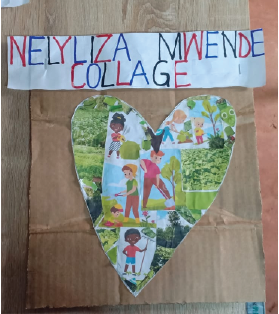 NELYLIZA MWENDE
COLLAGE